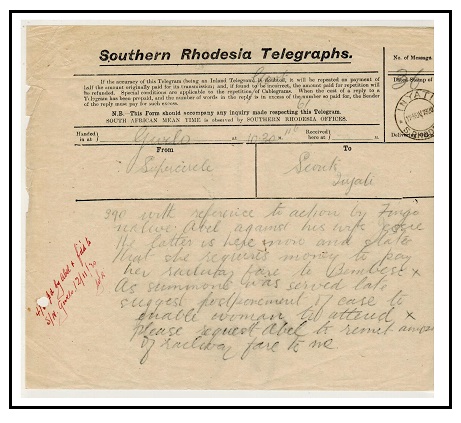 Southern Rhodesia Telegraphs.
No. of Message.
If the accuracy of this Telegram (being an Inland Telegram) is doubted, it will be repeated on payment of
half the amount originally paid for its transmission; and, if found to be incorrect, the amount paid for repetition will
be refunded. Special conditions are applicable to the repetition of Cablegrams. When the cost of a reply to a
Telegram has been prepaid, and the number of words in the reply is in excess of the number so paid for, the Sender
of the reply must pay for such excess.
N.B.—This Form should accompany any inquiry made respecting this Telegram.
SOUTH AFRICAN MEAN TIME is observed by SOUTHERN RHODESIA OFFICES.
Dated Stamp of
INYATI
Delivering Office
Handed in at
Gwelo
at
Received here at
From
To
Supercircle
Inyati
390 with reference to action by Fingo
native Abel against his wife
the latter is here now and states
that she requires money to pay
her railway fare to Bembesi x
As summons was served late
suggest postponement of case to
enable woman to attend x
Please request Abel to remit
of railway fare to me
by Abel
Gwelo 12/11/20